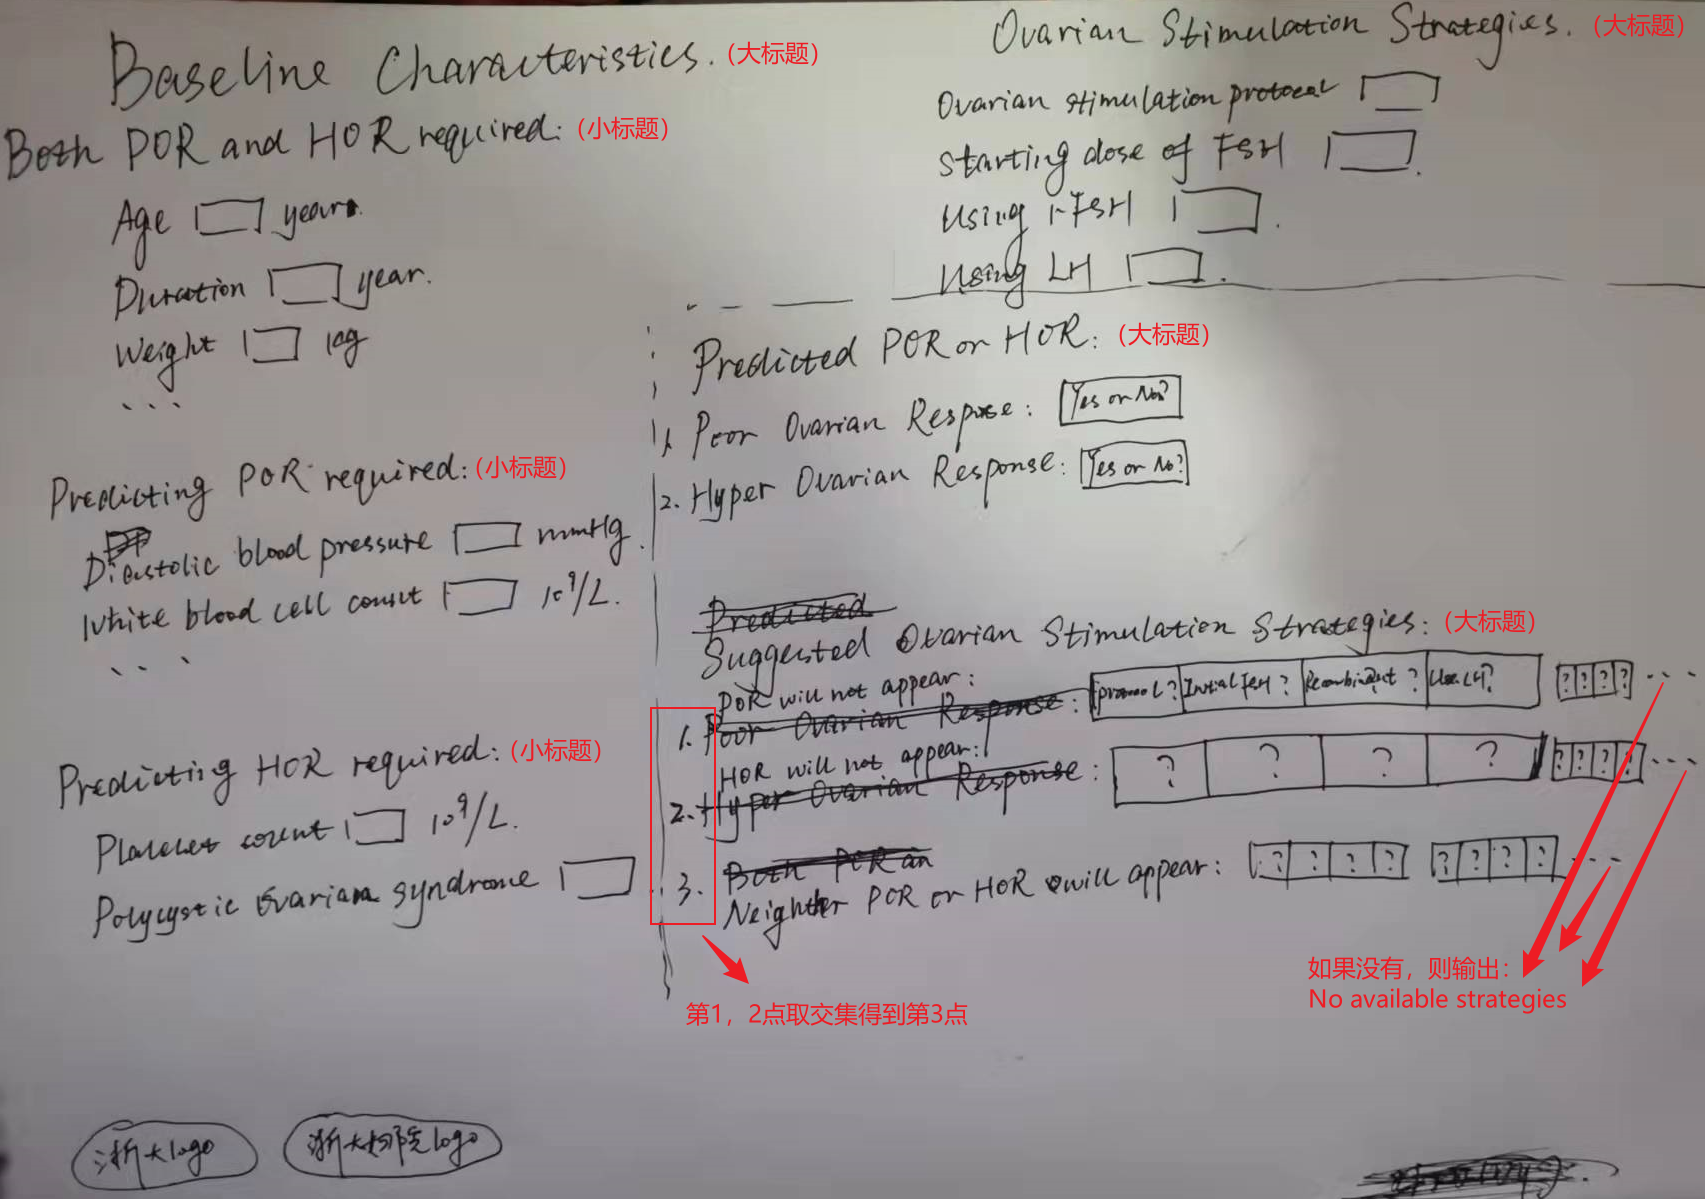 Baseline Characteristics. (大标题)
Both POR and HOR required: (小标题)
Age years.
Duration year.
Weight kg
...
Predicting POR required: (小标题)
Diastolic blood pressure mmHg.
White blood cell count 10⁹/L.
...
Predicting HOR required: (小标题)
Platelet count 10⁹/L.
Polycystic Ovarian syndrome
浙大logo
浙大妇院logo
Ovarian Stimulation Strategies. (大标题)
Ovarian stimulation protocal
Starting dose of FSH
Using r-FSH
Using LH
Predicted POR or HOR: (大标题)
1. Poor Ovarian Respose: Yes or No?
2. Hyper Ovarian Response: Yes or No?
Predicted
Suggested Ovarian Stimulation Strategies: (大标题)
POR will not appear:
1. Poor Ovarian Response: protocol? Initial FSH? Recombinant? Use LH? ? ? ? ? ...
HOR will not appear:
2. Hyper Ovarian Response: ? ? ? ? ? ? ? ? ...
Both POR an
3. Neighter POR or HOR will appear: ? ? ? ? ? ? ? ? ...
第1，2点取交集得到第3点
如果没有，则输出：
No available strategies